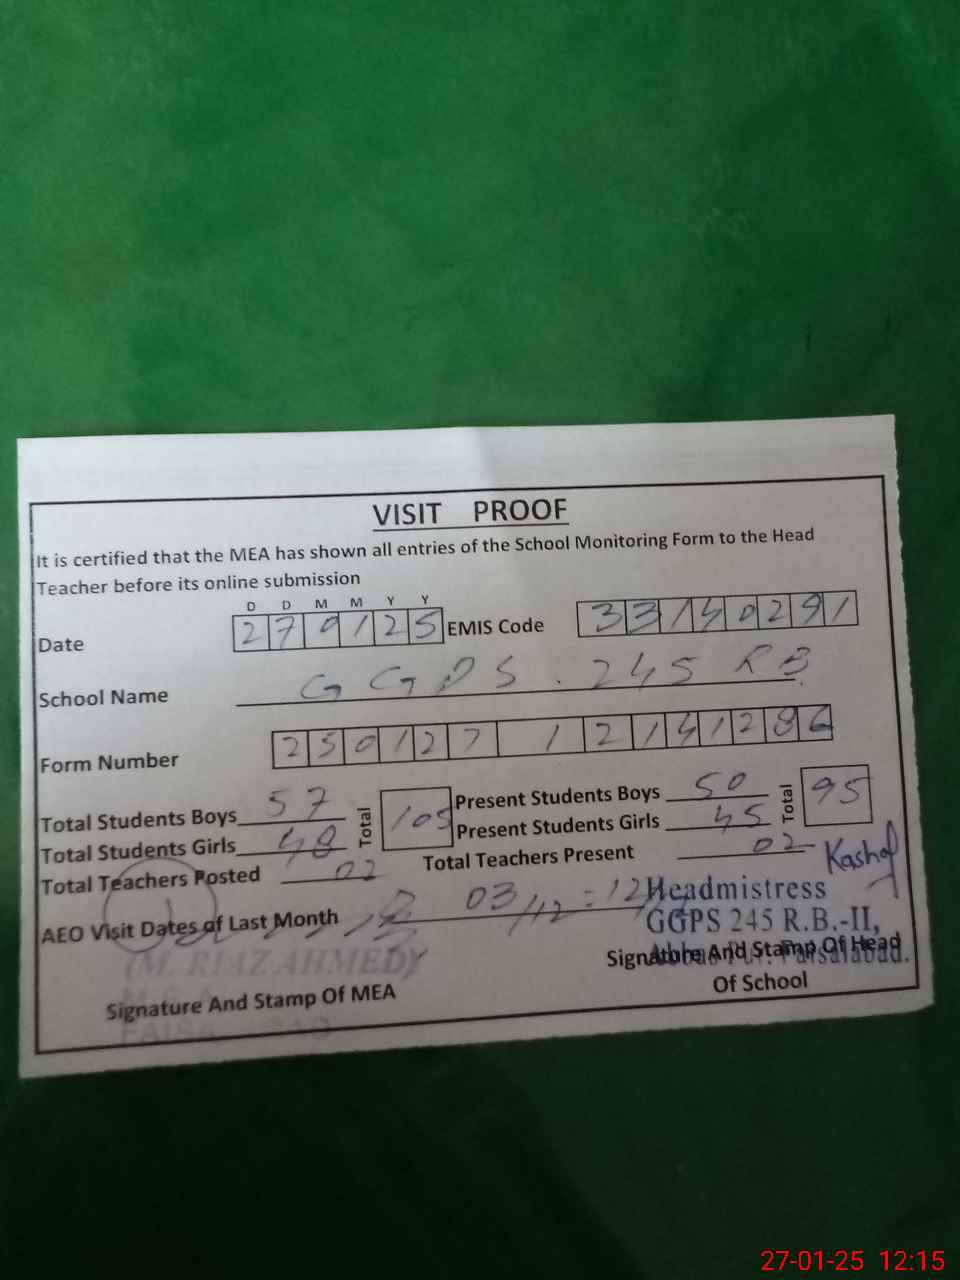 VISIT PROOF
It is certified that the MEA has shown all entries of the School Monitoring Form to the Head
Teacher before its online submission
D D M M Y Y
Date 2 7 0 1 2 5 EMIS Code 3 3 1 4 0 2 9 1
School Name GGPS. 245 RB.
Form Number 2 5 0 1 2 7 1 2 1 4 1 2 8 6
Total Students Boys 57 Total 105 Present Students Boys 50 Total 95
Total Students Girls 48 Present Students Girls 45
Total Teachers Posted 02 Total Teachers Present 02
Kashaf
AEO Visit Dates of Last Month 03/12
Headmistress
GGPS 245 R.B.-II,
Faisalabad.
(M. RIAZ AHMED)
Signature And Stamp Of MEA
Signature And Stamp Of Head
Of School
27-01-25 12:15